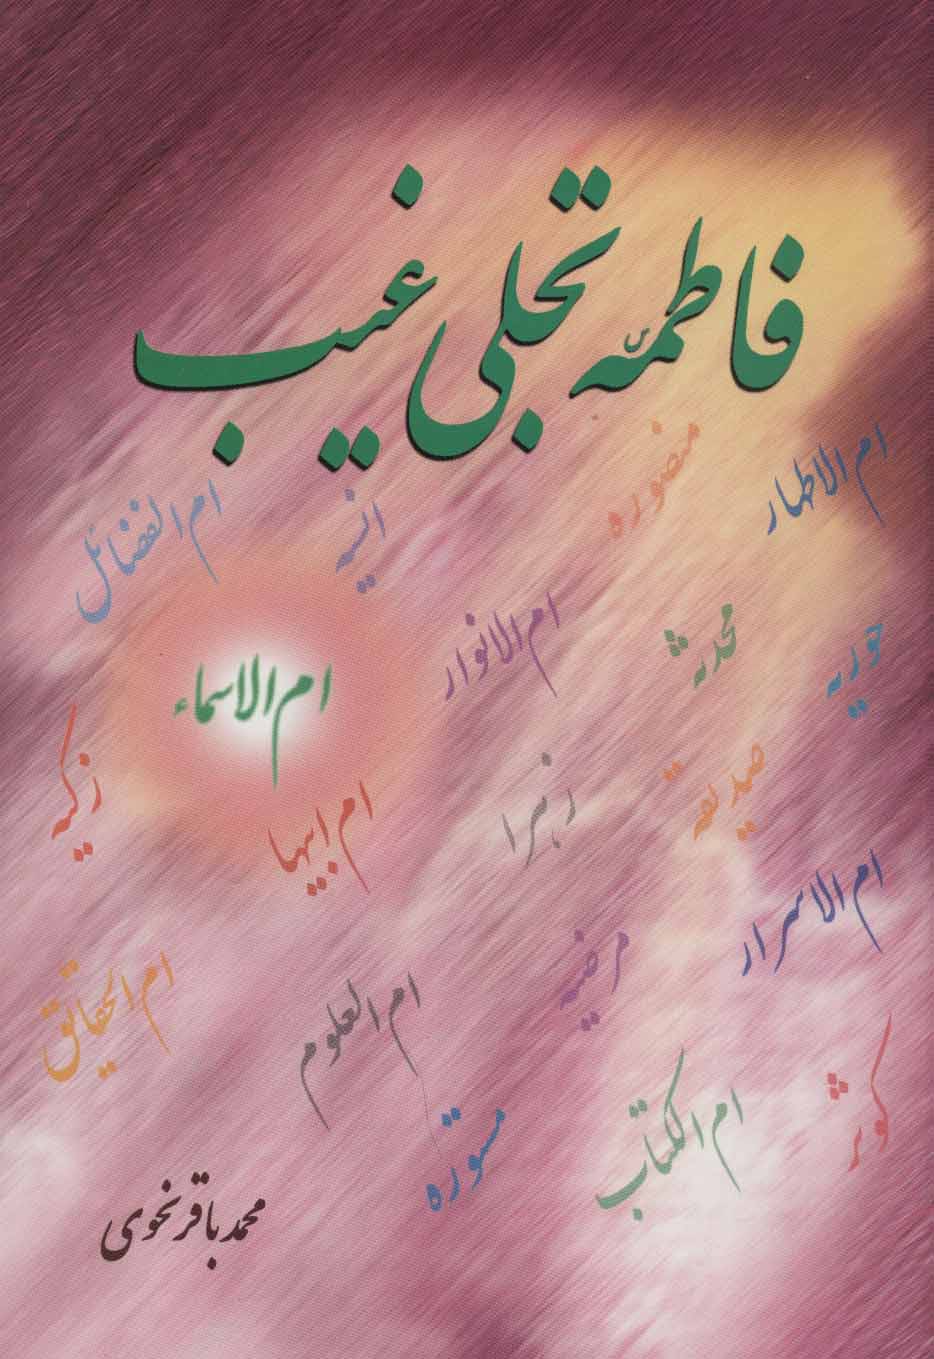 فاطمه تجلی غیب
ام الاطهار
منصوره
انسیه
ام الفضائل
حوریه
محدثه
ام الانوار
ام الاسماء
صدیقه
زهرا
ام ابیها
زکیه
ام الاسرار
مرضیه
ام العلوم
ام الحقائق
کوثر
ام الکتاب
مستوره
محمدباقر نخوی